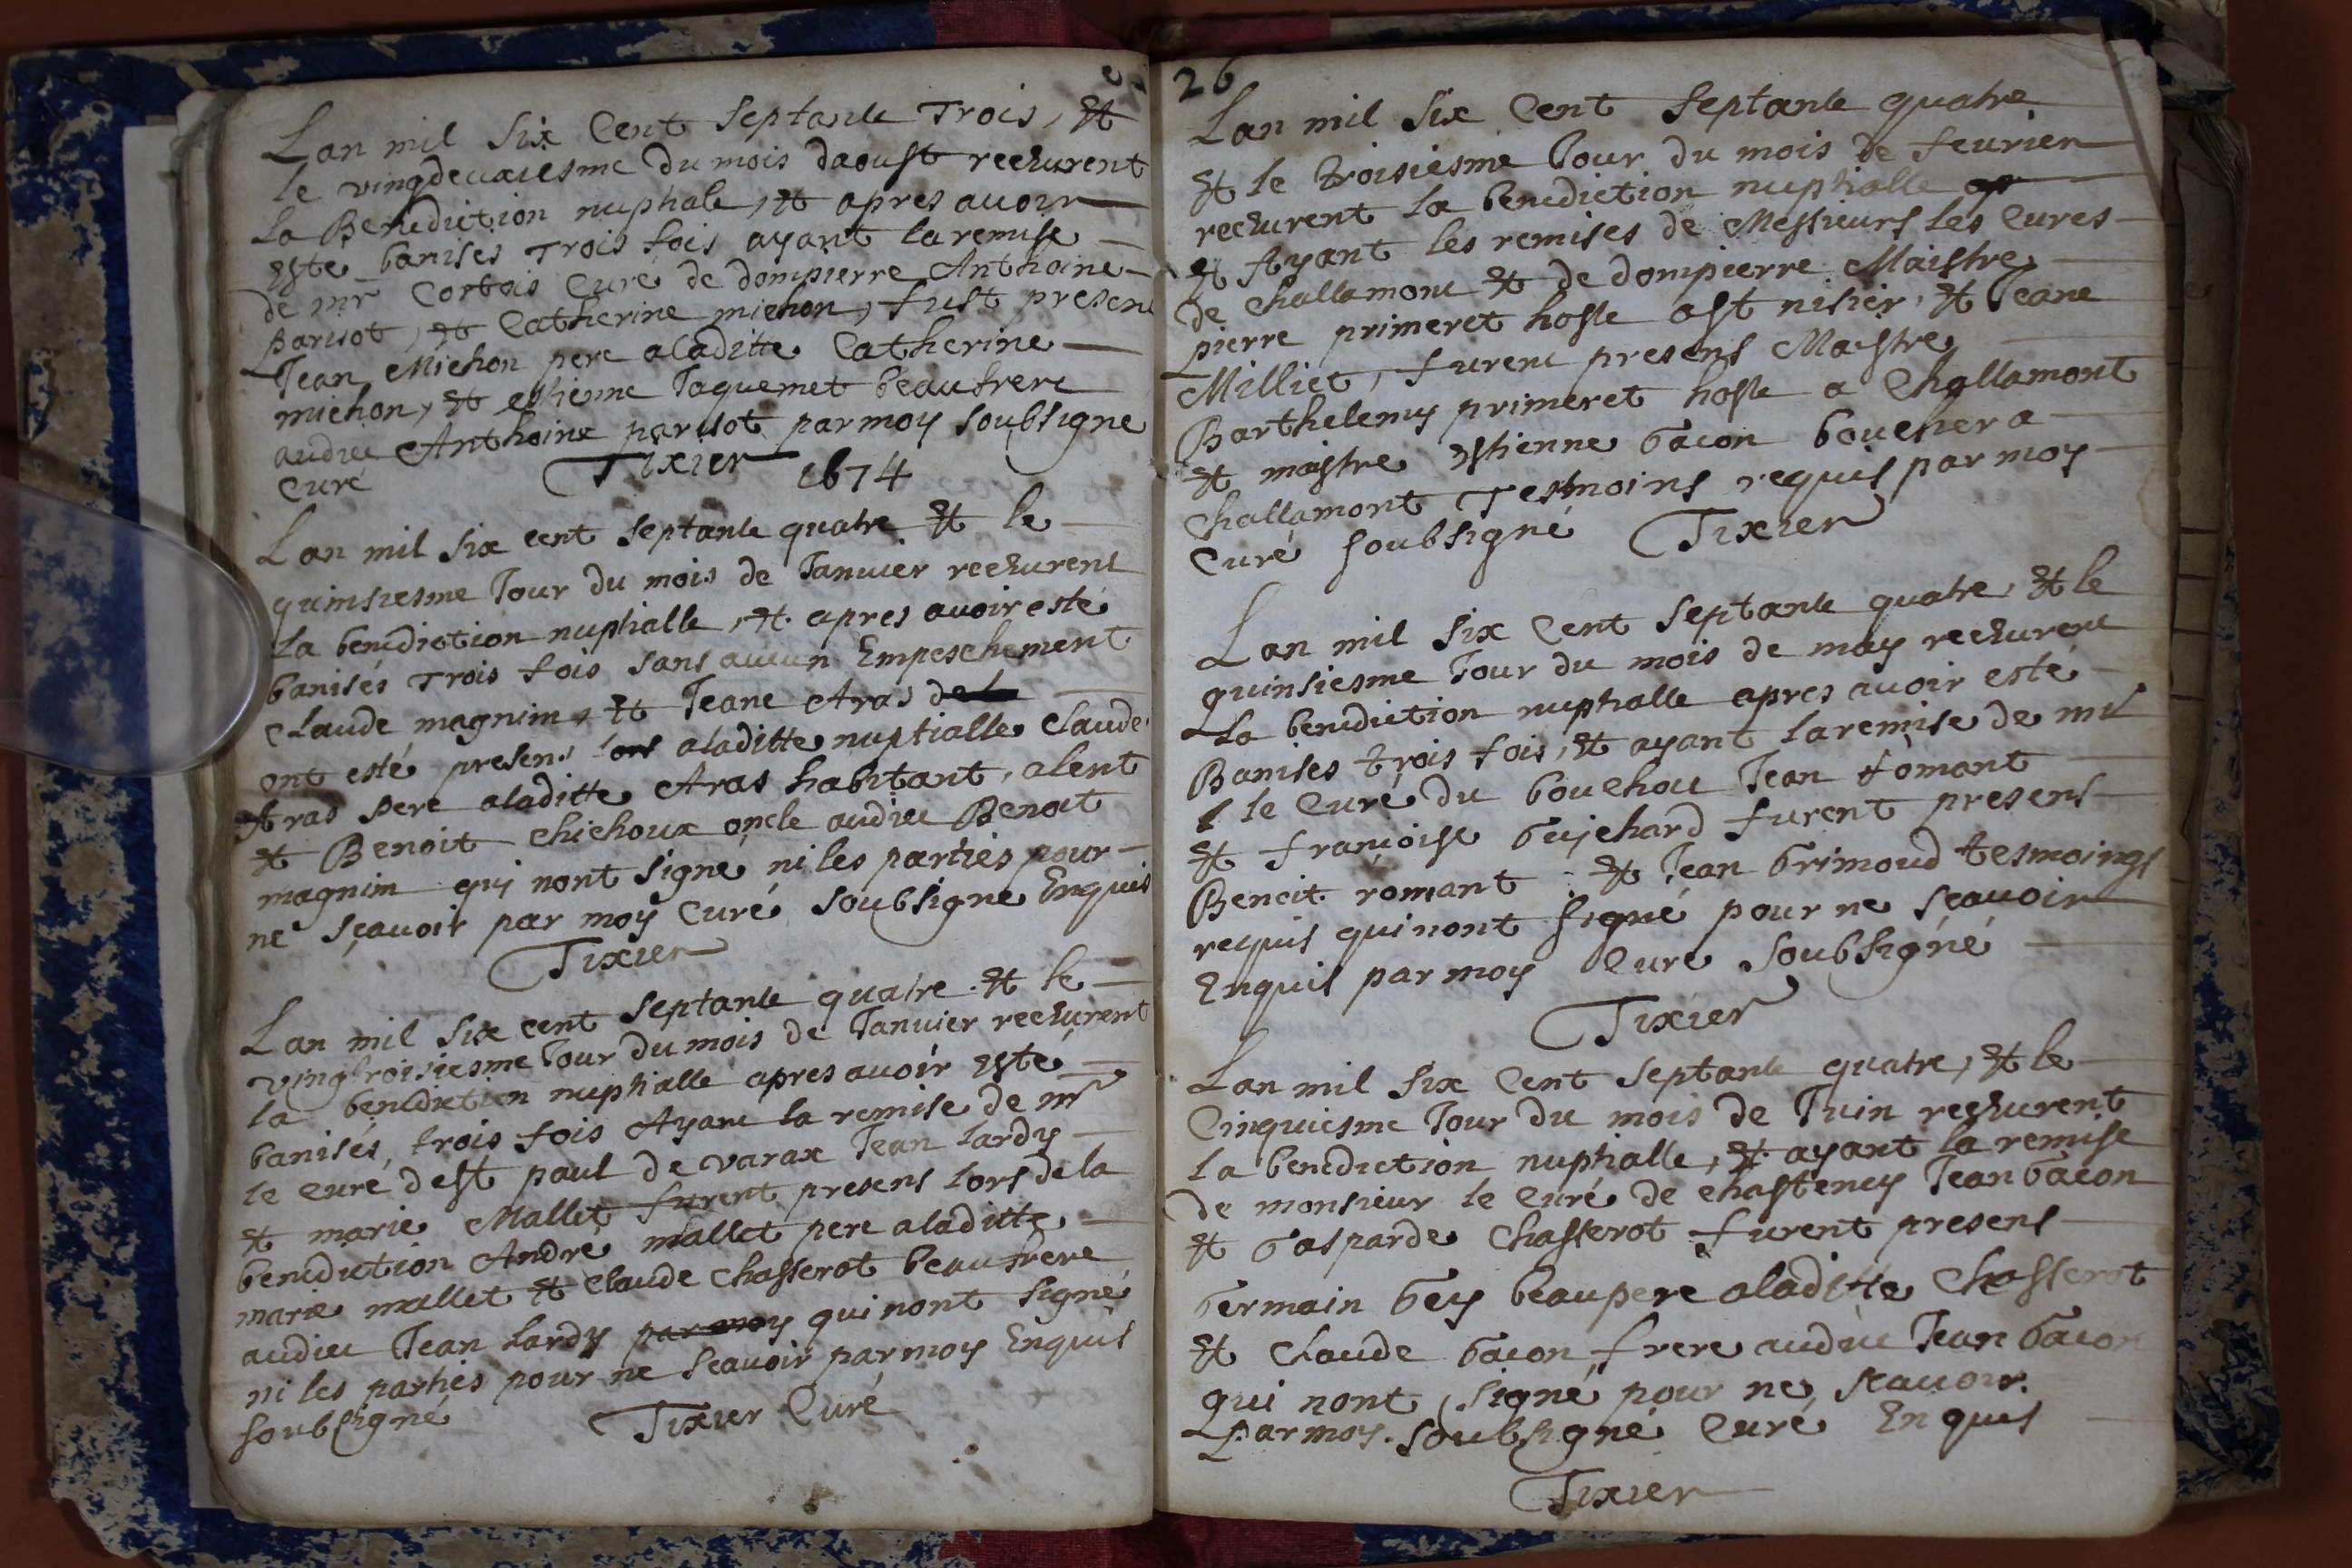 Lan mil six Cent septante Trois, et
le vingdeuxiesme du mois daoust receurent
la Benediction nuptiale, et apres auoir
este banises Trois fois ayant la remise
de mr Corbois Curé de dompierre Anthoine
parisot, et Catherine michon, fust present
Jean Michon pere aladitte Catherine
michon, et estienne Jaquemet beaufrere
audict Anthoine parisot par moy soubsigne
Curé Tixier
1674
Lan mil six cent septante quatre et le
quinsiesme Jour du mois de Januier receurent
la benediction nuptialle, et apres auoir esté
banisés Trois fois sans aucun Empeschement
Claude magnim, et Jeane Aras
ont esté presens lors aladitte nuptialle Claude
Aras pere aladitte Aras habitant, alent
et Benoit Chichoux oncle audict Benoit
magnim qui nont signé ni les parties pour
ne sçauoir par moy Curé soubsigne Enquis
Tixier
Lan mil six cent septante quatre et le
vingtroisiesme Jour du mois de Januier receurent
la benediction nuptialle apres auoir esté
banisés, trois fois Ayant la remise de mr
le Curé dest paul de varax Jean Lardy
et marie Mallet furent presens lors de la
benediction André mallet pere aladitte
marie mallet et Claude Chasserot beaufrere
audict Jean Lardy par moy qui nont signé
ni les parties pour ne scauoir par moy Enquis
soubsigné Tixier Curé
26
Lan mil six Cent septante quatre
et le troisiesme Jour du mois de feurier
receurent la benediction nuptialle ap
et Ayant les remises de Messieurs les Cures
de Challamont et de dompierre Maistre
pierre primeret hoste ast nisier, et Jeane
Milliet, furent presens Maistre
Barthelemy primeret hoste a Challamont
et maistre estienne Bacon boucher a
Challamont Tesmoins requis par moy
Curé soubsigné Tixier
Lan mil six Cent septante quatre, et le
quinsiesme Jour du mois de may receurent
La benediction nuptialle apres auoir esté
Banises trois fois, et ayant la remise de mr
le Curé du bouchou Jean romant
et françoise Guichard furent presens
Benoit romant et Jean Grimoud tesmoings
requis qui nont signé pour ne sçauoir
Enquis par moy Curé soubsigné
Tixier
Lan mil six Cent septante quatre, et le
Cinquiesme Jour du mois de Juin recurent
la benediction nuptialle, et ayant la remise
de monsieur le Curé de Chasteney Jean Bacon
et Gasparde Chasserot furent presens
Germain Gey beaupere aladitte Chasserot
et Claude Bacon frere audict Jean Bacon
qui nont signé pour ne scauoir
Par moy soubsigné Curé Enquis
Tixier